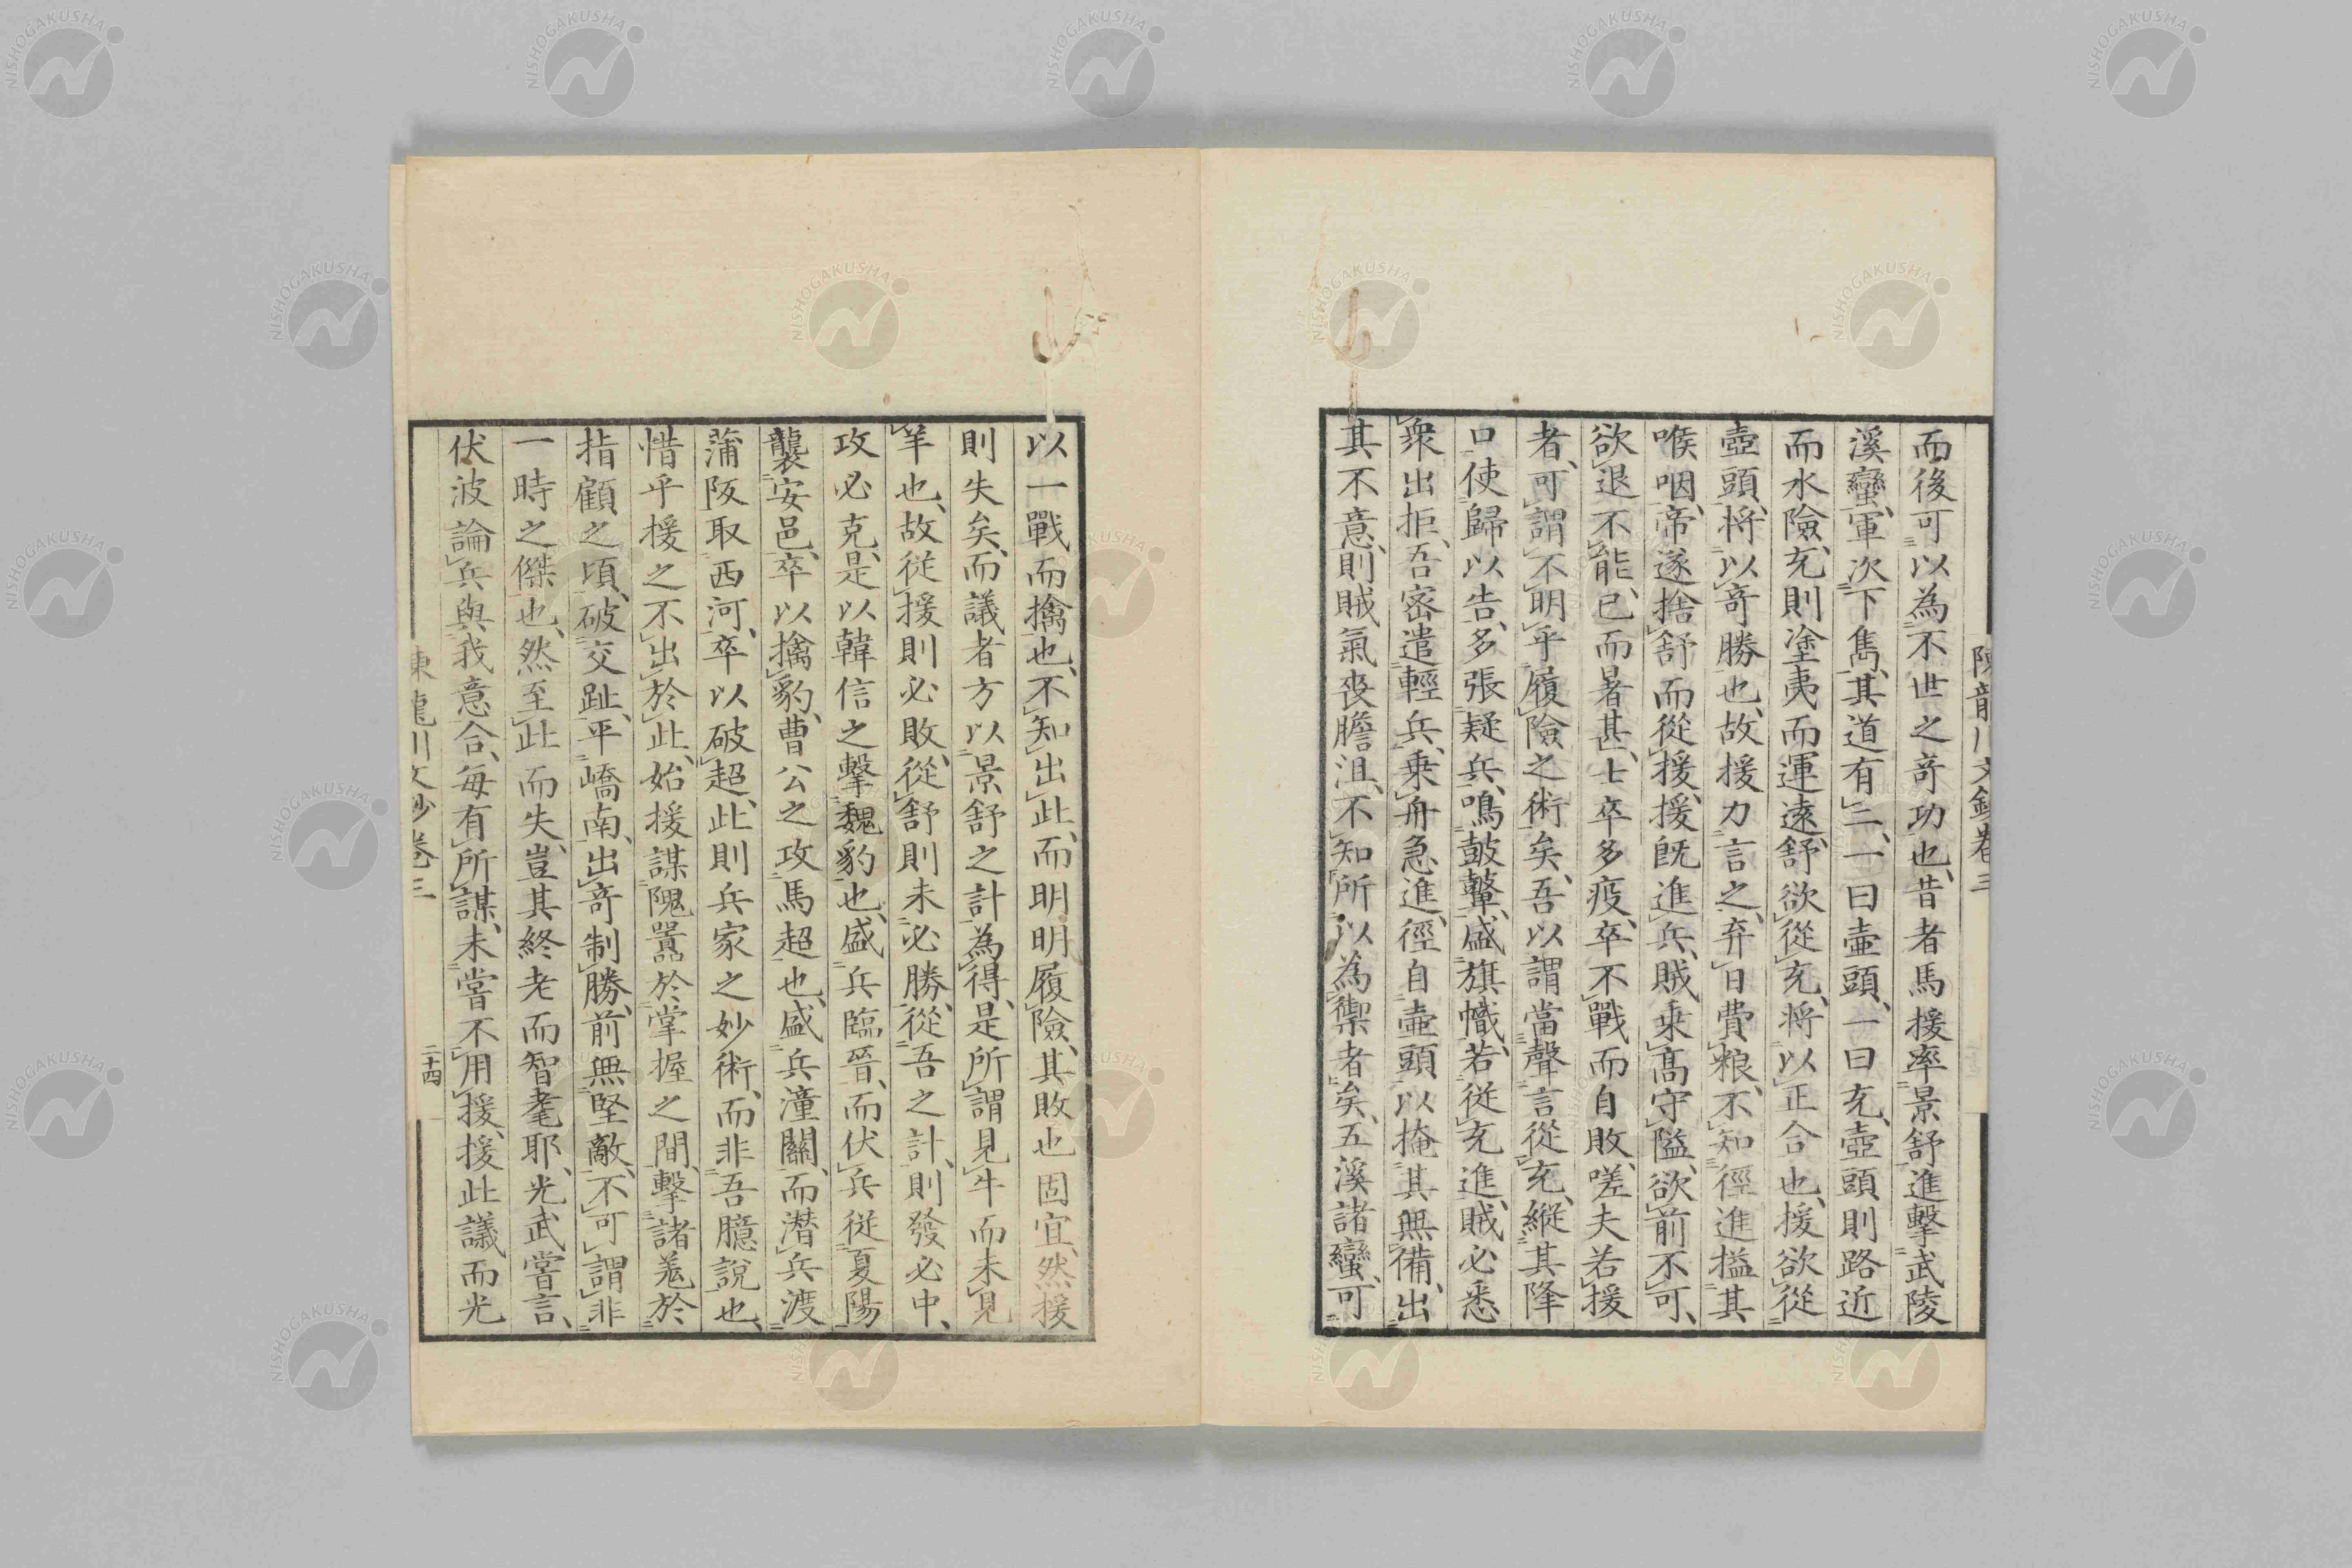 陳龍川文鈔卷三
而後可以為不世之奇功也、昔者馬援率景舒進擊武陵
溪蠻、軍次下雋、其道有二、一曰壷頭、一曰充、壷頭則路近
而水險、充則塗夷而運遠、舒欲從充、將以正合也、援欲從
壷頭、將以奇勝也、故援力言之、弃日費粮、不知徑進搤其
喉咽、帝遂捨舒而從援、援既進兵、賊乗高守隘、欲前不可、
欲退不能、已而暑甚、士卒多疫、卒不戰而自敗、嗟夫若援
者、可謂不明乎履險之術矣、吾以謂當聲言從充、縱其降
口使歸以告、多張疑兵、鳴鼓鼙、盛旗幟、若従充進、賊必悉
衆出拒、吾密遣輕兵、乗舟急進、徑自壷頭以掩其無備、出
其不意、則賊氣喪膽沮、不知所以為禦者矣、五溪諸蠻、可
以一戰而擒也、不知出此、而明明履險、其敗也固宜、然援
則失矣、而議者方以景舒之計為得、是所謂見牛而未見
羊也、故従援則必敗、從舒則未必勝、從吾之計、則發必中、
攻必克、是以韓信之擊魏豹也、盛兵臨晉、而伏兵従夏陽
襲安邑、卒以擒豹、曹公之攻馬超也、盛兵潼關、而潜兵渡
蒲阪取西河、卒以破超、此則兵家之妙術、而非吾臆說也、
惜乎援之不出於此、始援謀隗囂於掌握之間、擊諸羗於
指顧之頃、破交趾、平嶠南、出奇制勝、前無堅敵、不可謂非
一時之傑也、然至此而失、豈其終老而智耄耶、光武嘗言、
伏波論兵與我意合、每有所謀、未嘗不用援、援此議而光
陳龍川文鈔卷三
二十四